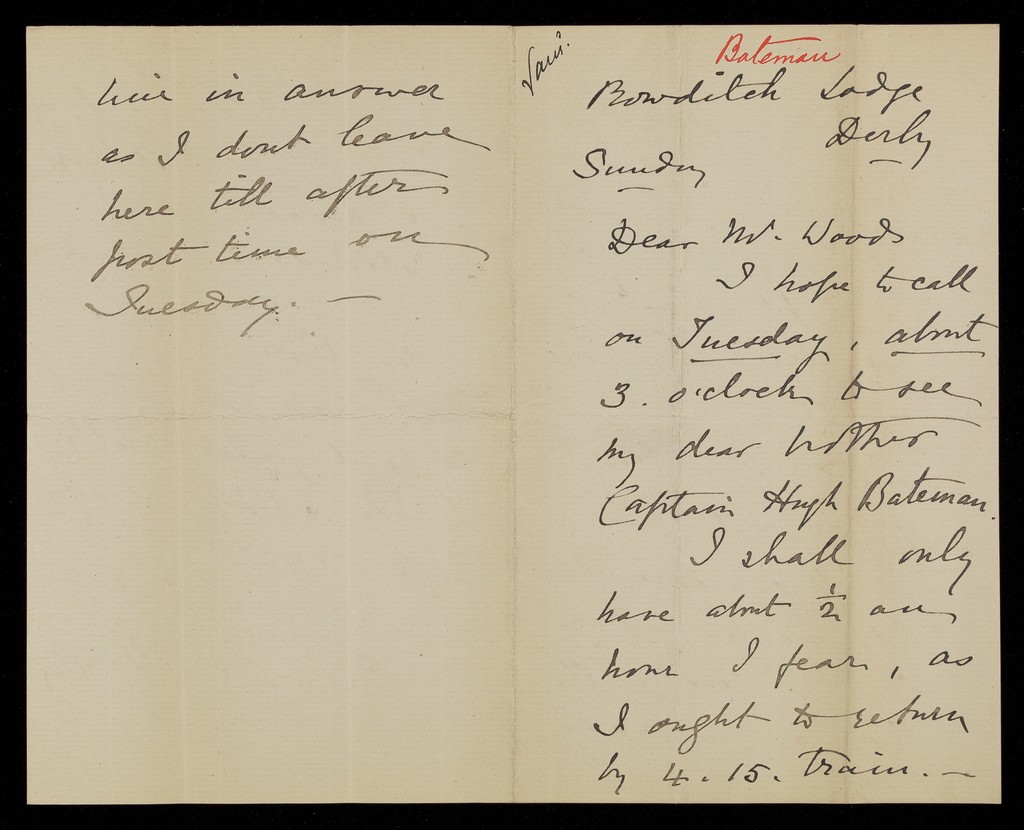 Bateman
Bowditch Lodge
Derby
Sunday
Dear Mr. Woods
I hope to call
on Tuesday, about
3. o'clock to see
my dear brother
Captain Hugh Bateman.
I shall only
have about ½ an
hour I fear, as
I ought to return
by 4.15. train. —
line in answer
as I dont leave
here till after
post time on
Tuesday. —